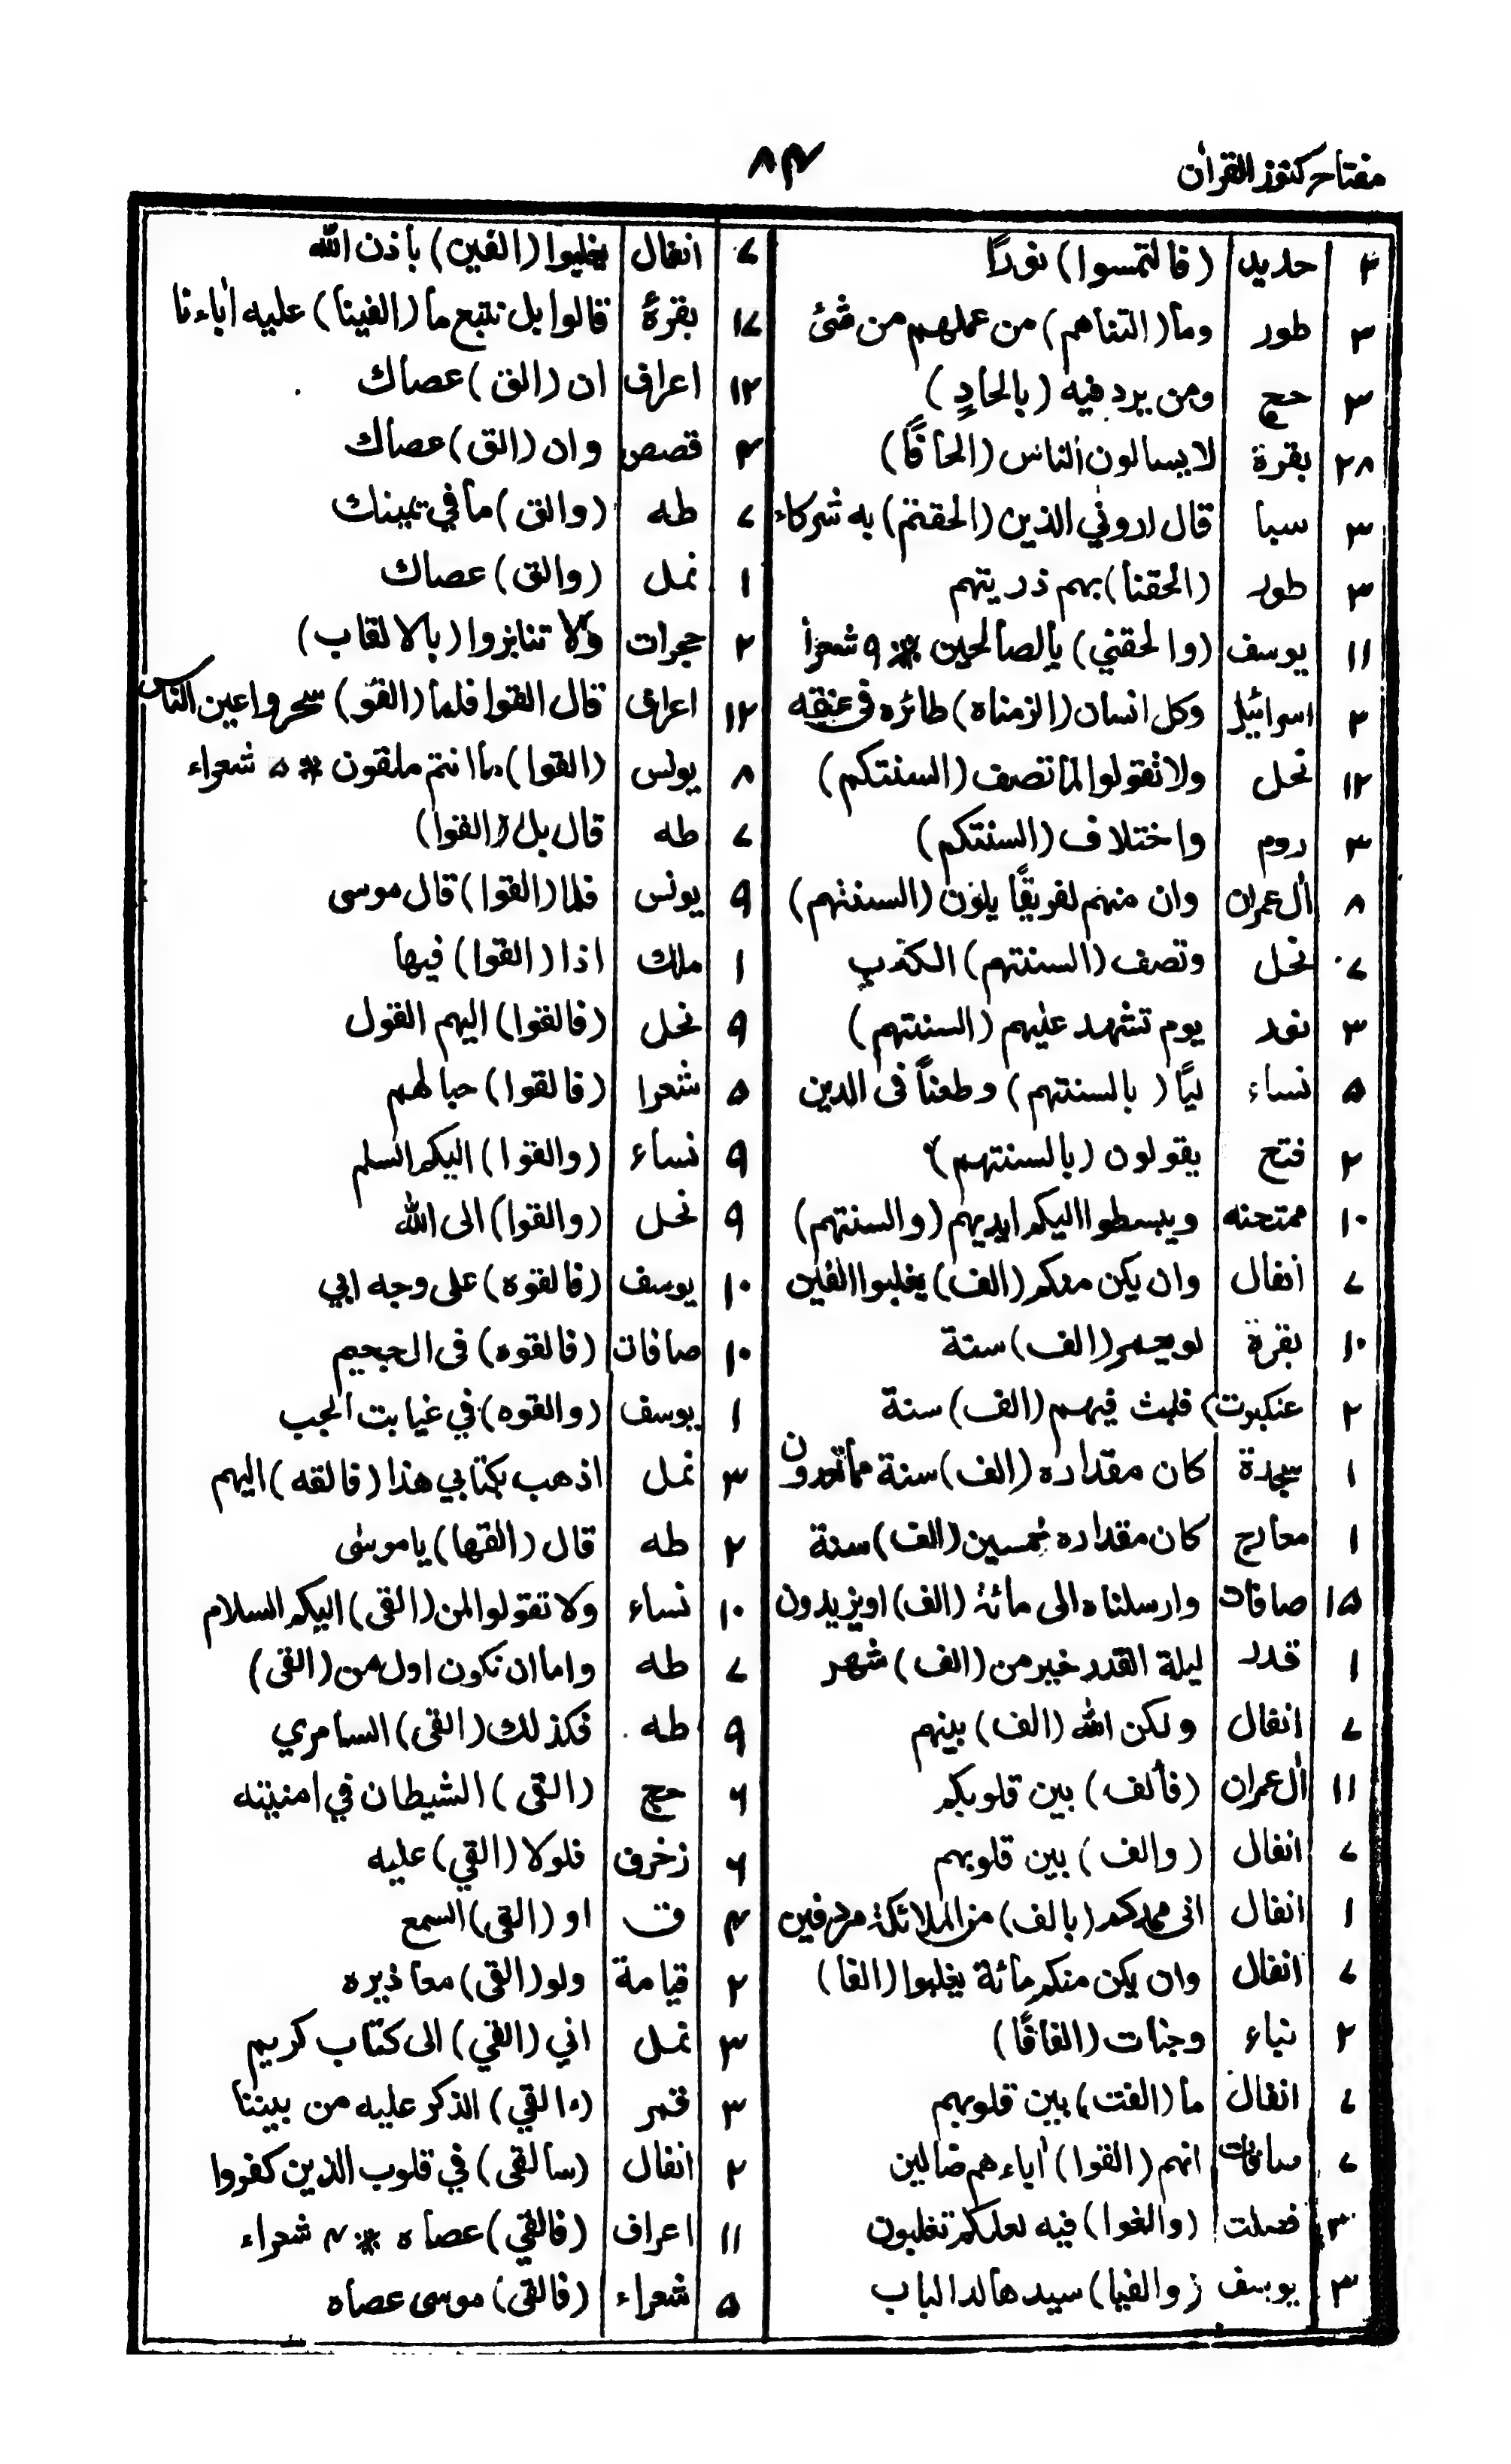 مفتاح كنوز القران
٨٣
٢ حديد (فالتمسوا) نورًا
٣ طور وما (التناهم) من عملهم من شئ
٣ حج ومن يرد فيه (بالحادٍ)
٢٨ بقرة لا يسالون الناس (الحافًا)
٣ سبا قال اروني الذين (الحقتم) به شركاء
٣ طور (الحقنا) بهم ذريتهم
١١ يوسف (والحقني) بالصالحين * ٩ شعرا
٢ اسرائيل وكل انسان (الزمناه) طائره في عنقه
١٢ نحل ولا تقولوا لما تصف (السنتكم)
٣ روم واختلاف (السنتكم)
٨ اٰل عمران وان منهم لفريقًا يلون (السنتهم)
٧ نحل وتصف (السنتهم) الكذب
٣ نور يوم تشهد عليهم (السنتهم)
٥ نساء ليًا (بالسنتهم) وطعناً فى الدين
٢ فتح يقولون (بالسنتهم)
١٠ ممتحنه ويبسطوا اليكم ايديهم (والسنتهم)
٧ انفال وان يكن منكم (الف) يغلبوا الفين
١٠ بقرة لو يعمر (الف) سنة
٢ عنكبوت فلبث فيهم (الف) سنة
١ سجدة كان مقداره (الف) سنة مما تعدون
١ معارج كان مقداره خمسين (الف) سنة
١٥ صافات وارسلناه الى مائة (الف) او يزيدون
١ قدر ليلة القدر خير من (الف) شهر
٧ انفال ولكن الله (الف) بينهم
١١ اٰل عمران (فألف) بين قلوبكم
٧ انفال (والف) بين قلوبهم
١ انفال انى ممدكم (بالف) من الملائكة مردفين
٧ انفال وان يكن منكم مائة يغلبوا (الفا)
٢ نباء وجنات (الفافًا)
٧ انفال ما (الفت) بين قلوبهم
٧ صافات انهم (الفوا) اٰباءهم ضالين
٣ فصلت (والغوا) فيه لعلكم تغلبون
٣ يوسف (والفيا) سيدها لدا الباب
٧ انفال يغلبوا (الفين) باذن الله
١٧ بقرة قالوا بل نتبع ما (الفينا) عليه اٰباءنا
١٢ اعراف ان (الق) عصاك
٣ قصص وان (الق) عصاك
٧ طه (والق) ما في يمينك
١ نمل (والق) عصاك
٢ حجرات ولا تنابزوا (بالالقاب)
١٢ اعراف قال القوا فلما (القو) سحروا عين الناس
٨ يونس (القوا) ما انتم ملقون * ٥ شعراء
٧ طه قال بل (القوا)
٩ يونس فلما (القوا) قال موسى
١ ملك اذا (القوا) فيها
٩ نحل (فالقوا) اليهم القول
٥ شعرا (فالقوا) حبالهم
٩ نساء (والقوا) اليكم السلم
٩ نحل (والقوا) الى الله
١٠ يوسف (فالقوه) على وجه ابي
١٠ صافات (فالقوه) فى الجحيم
١ يوسف (والقوه) في غيابت الجب
٣ نمل اذهب بكتابي هذا (فالقه) اليهم
٢ طه قال (القها) يا موسى
١٠ نساء ولا تقولوا لمن (القى) اليكم السلام
٧ طه واما ان نكون اول من (القى)
٩ طه فكذلك (القى) السامري
٦ حج (القى) الشيطان في امنيته
٦ زخرف فلولا (القي) عليه
٣ ق او (القى) السمع
٢ قيامة ولو (القى) معاذيره
٣ نمل اني (القي) الى كتاب كريم
٣ قمر (ءالقي) الذكر عليه من بيننا
٢ انفال (سالقى) في قلوب الذين كفروا
١١ اعراف (فالقي) عصاه * ٣ شعراء
٥ شعراء (فالقى) موسى عصاه